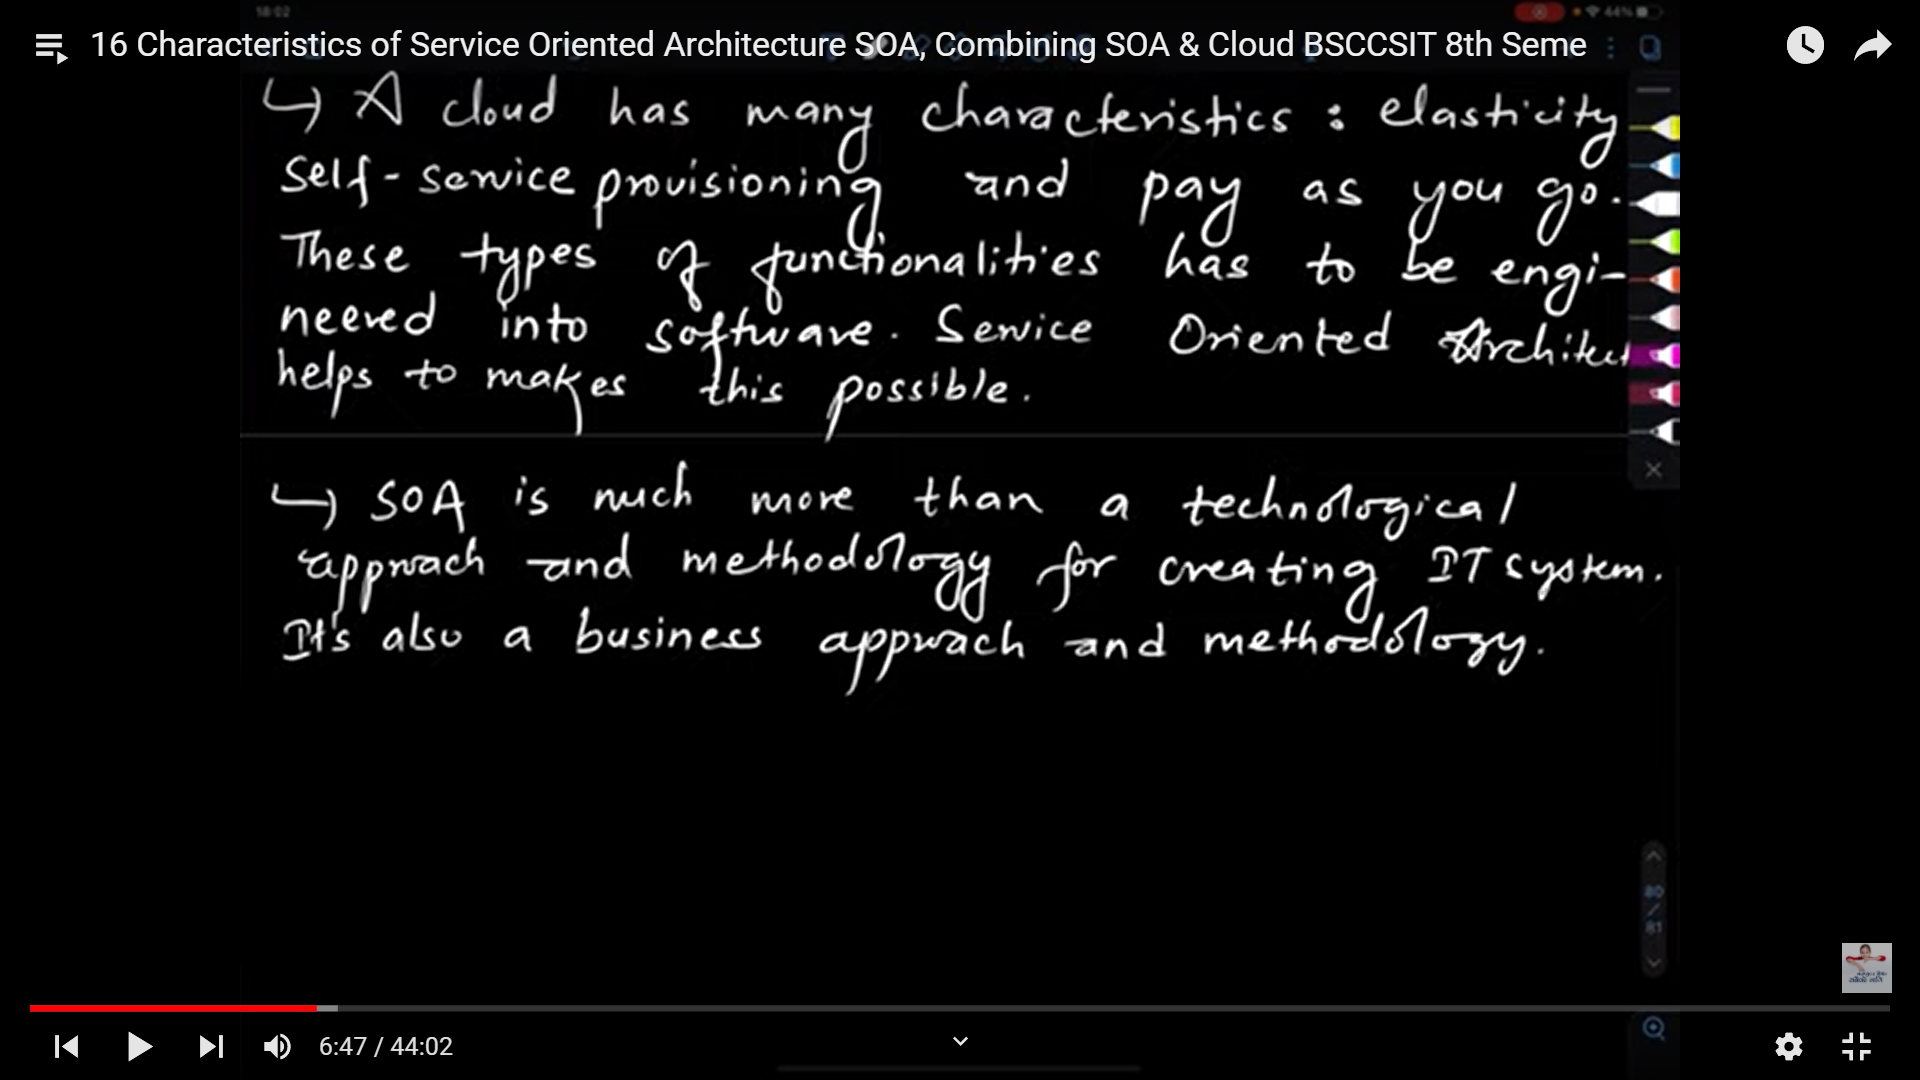 18:02
44%
16 Characteristics of Service Oriented Architecture SOA, Combining SOA & Cloud BSCCSIT 8th Seme
↳ A cloud has many characteristics : elasticity
self-service provisioning and pay as you go.
These types of functionalities has to be engi-
neered into software. Service Oriented Architect
helps to makes this possible.
↳ SOA is much more than a technological
approach and methodology for creating IT system.
It's also a business approach and methodology.
80
/
81
6:47 / 44:02